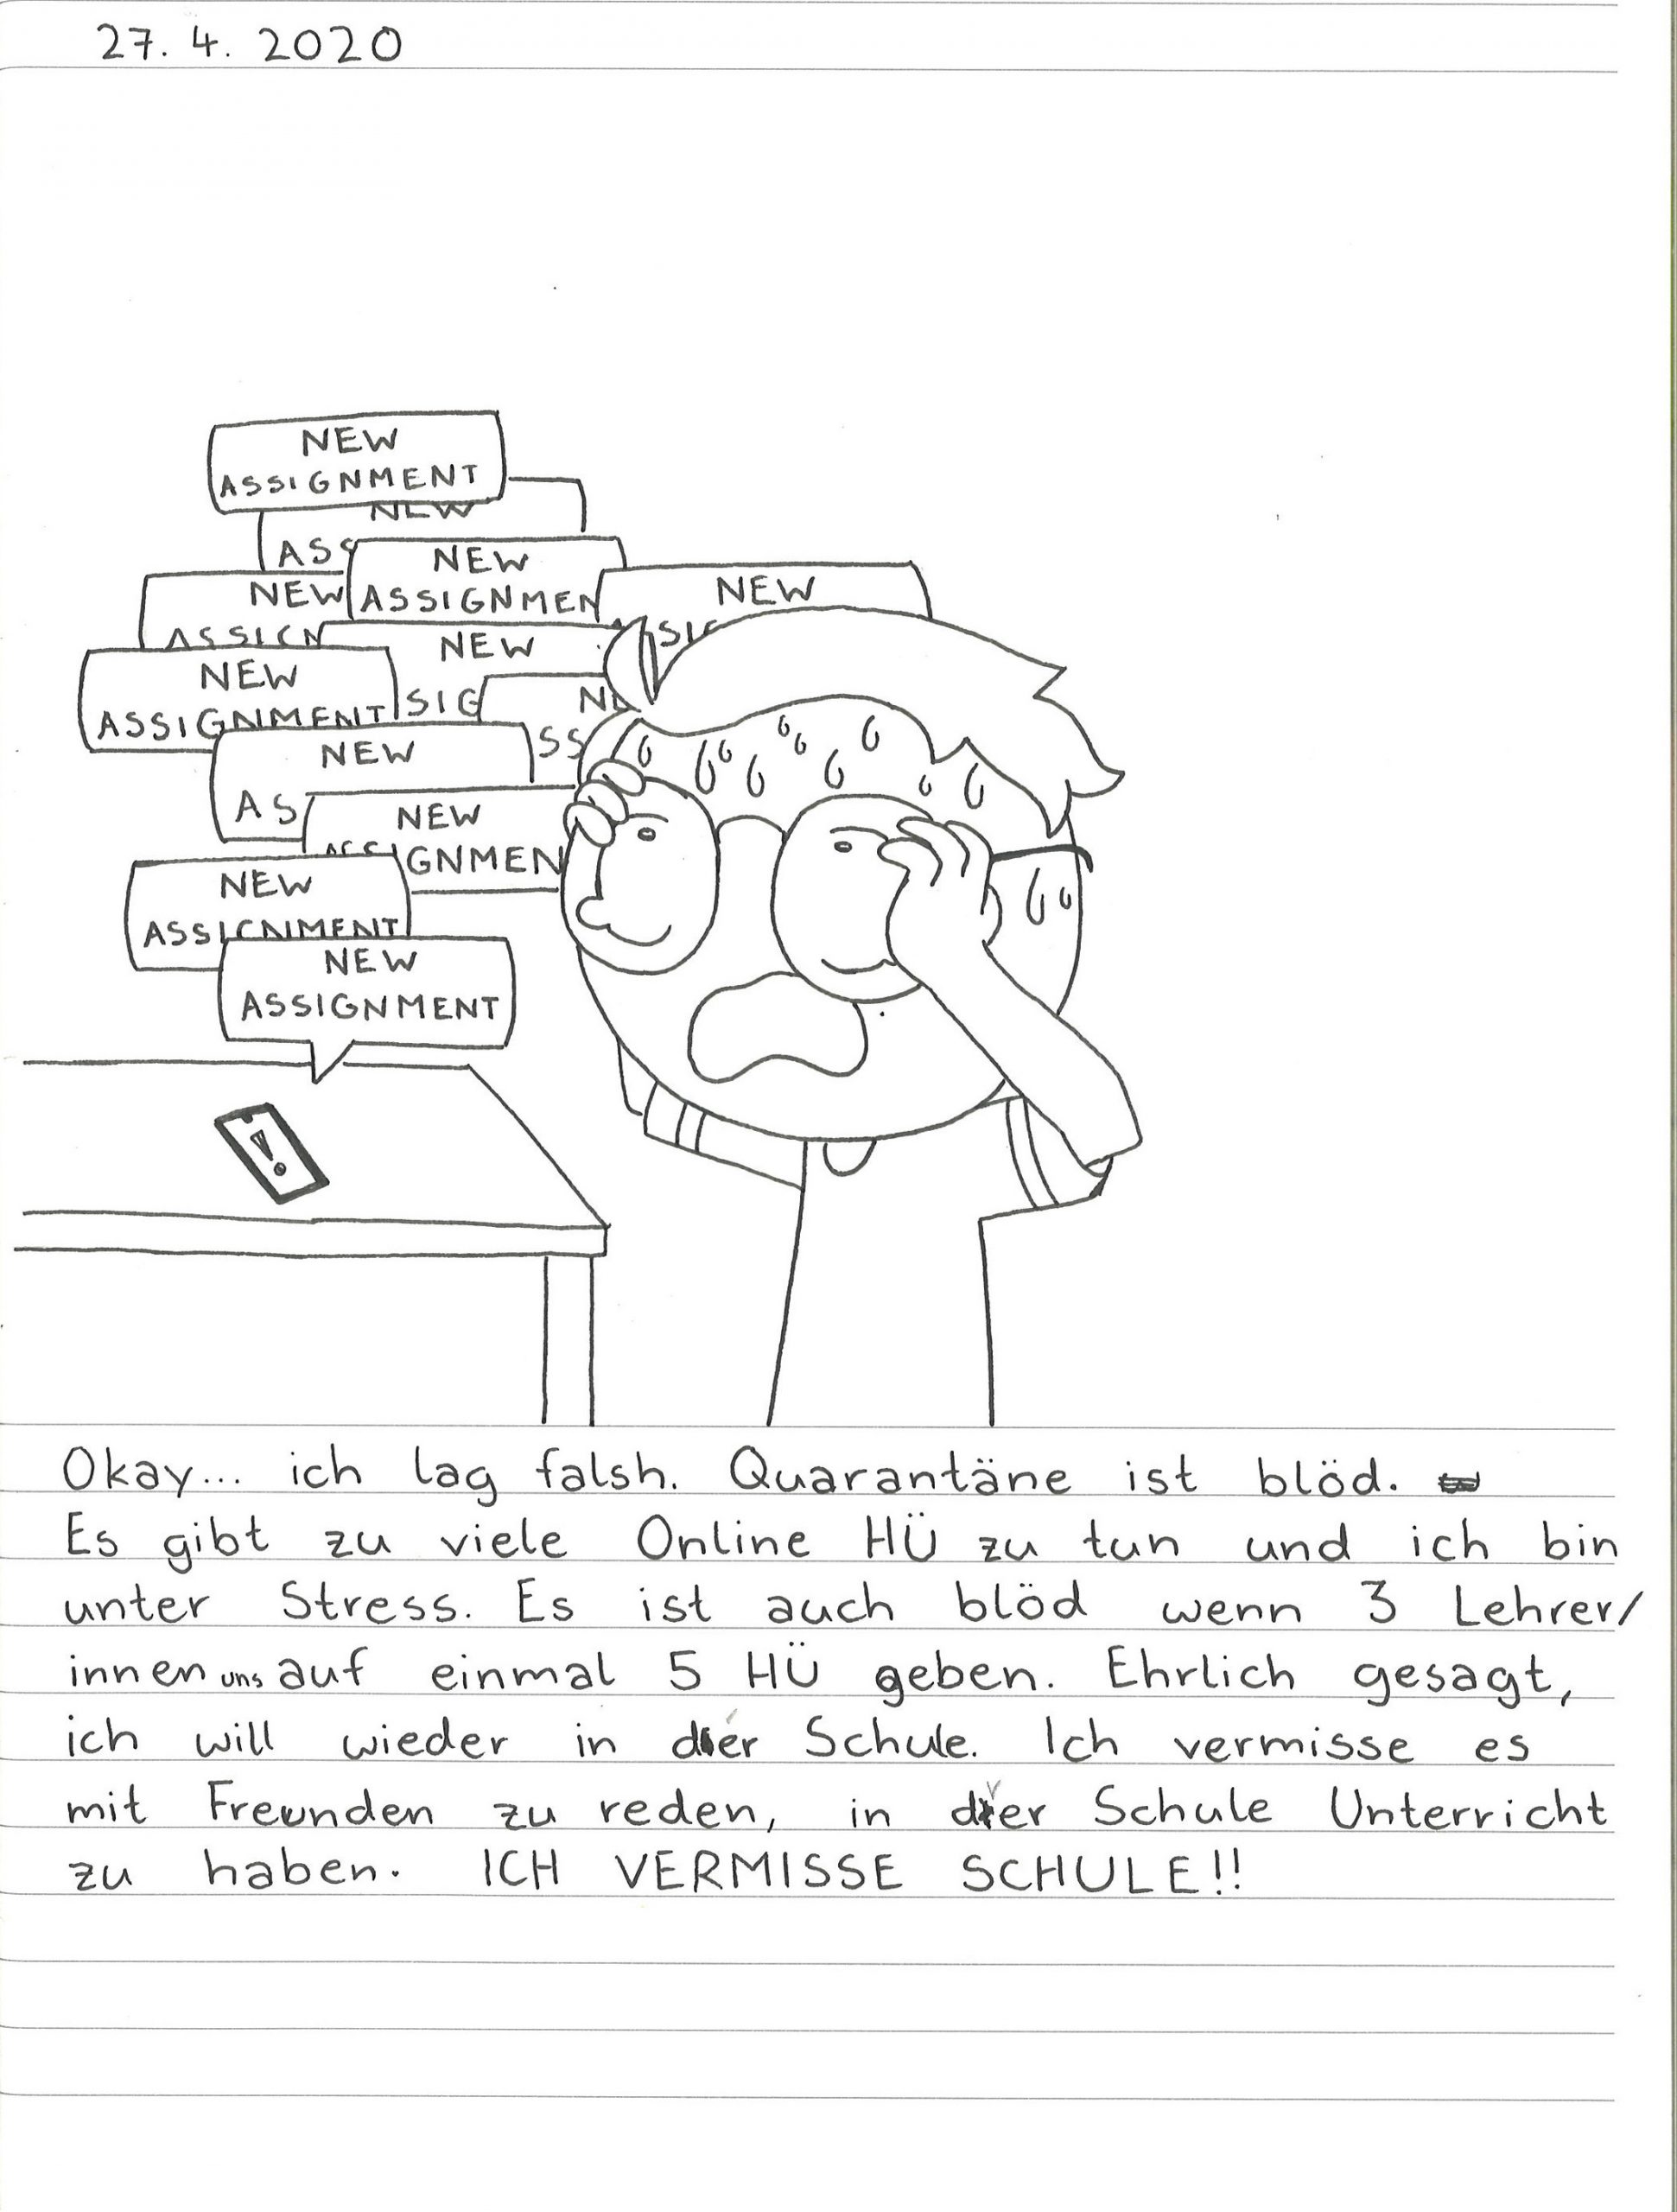 27. 4. 2020
NEW
ASSIGNMENT
NEW
ASS
NEW
ASSIGNMEN
NEW
SIG
NEW
ASSIGN
NEW
SIG
NEW
ASSIGNMENT
NE
SS
NEW
AS
NEW
ASSIGNMEN
NEW
ASSIGNMENT
NEW
ASSIGNMENT
!
Okay... ich lag falsh. Quarantäne ist blöd.
Es gibt zu viele Online HÜ zu tun und ich bin
unter Stress. Es ist auch blöd wenn 3 Lehrer/
innen uns auf einmal 5 HÜ geben. Ehrlich gesagt,
ich will wieder in der Schule. Ich vermisse es
mit Freunden zu reden, in der Schule Unterricht
zu haben. ICH VERMISSE SCHULE!!